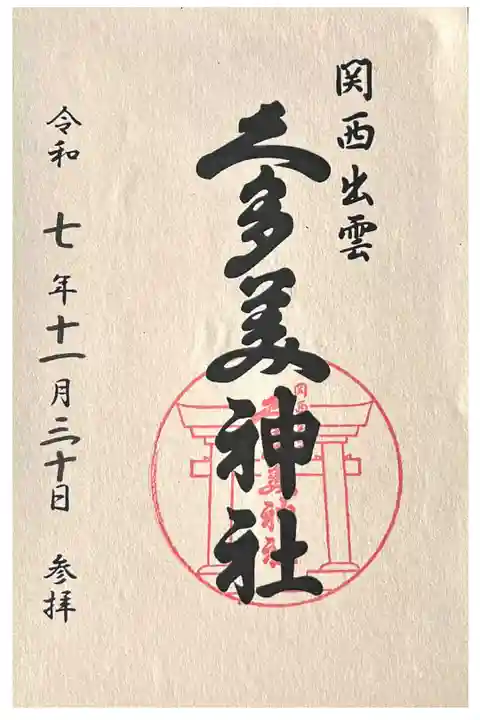 関西出雲
久多美神社
令和七年十一月三十日 参拝
関西
美神社